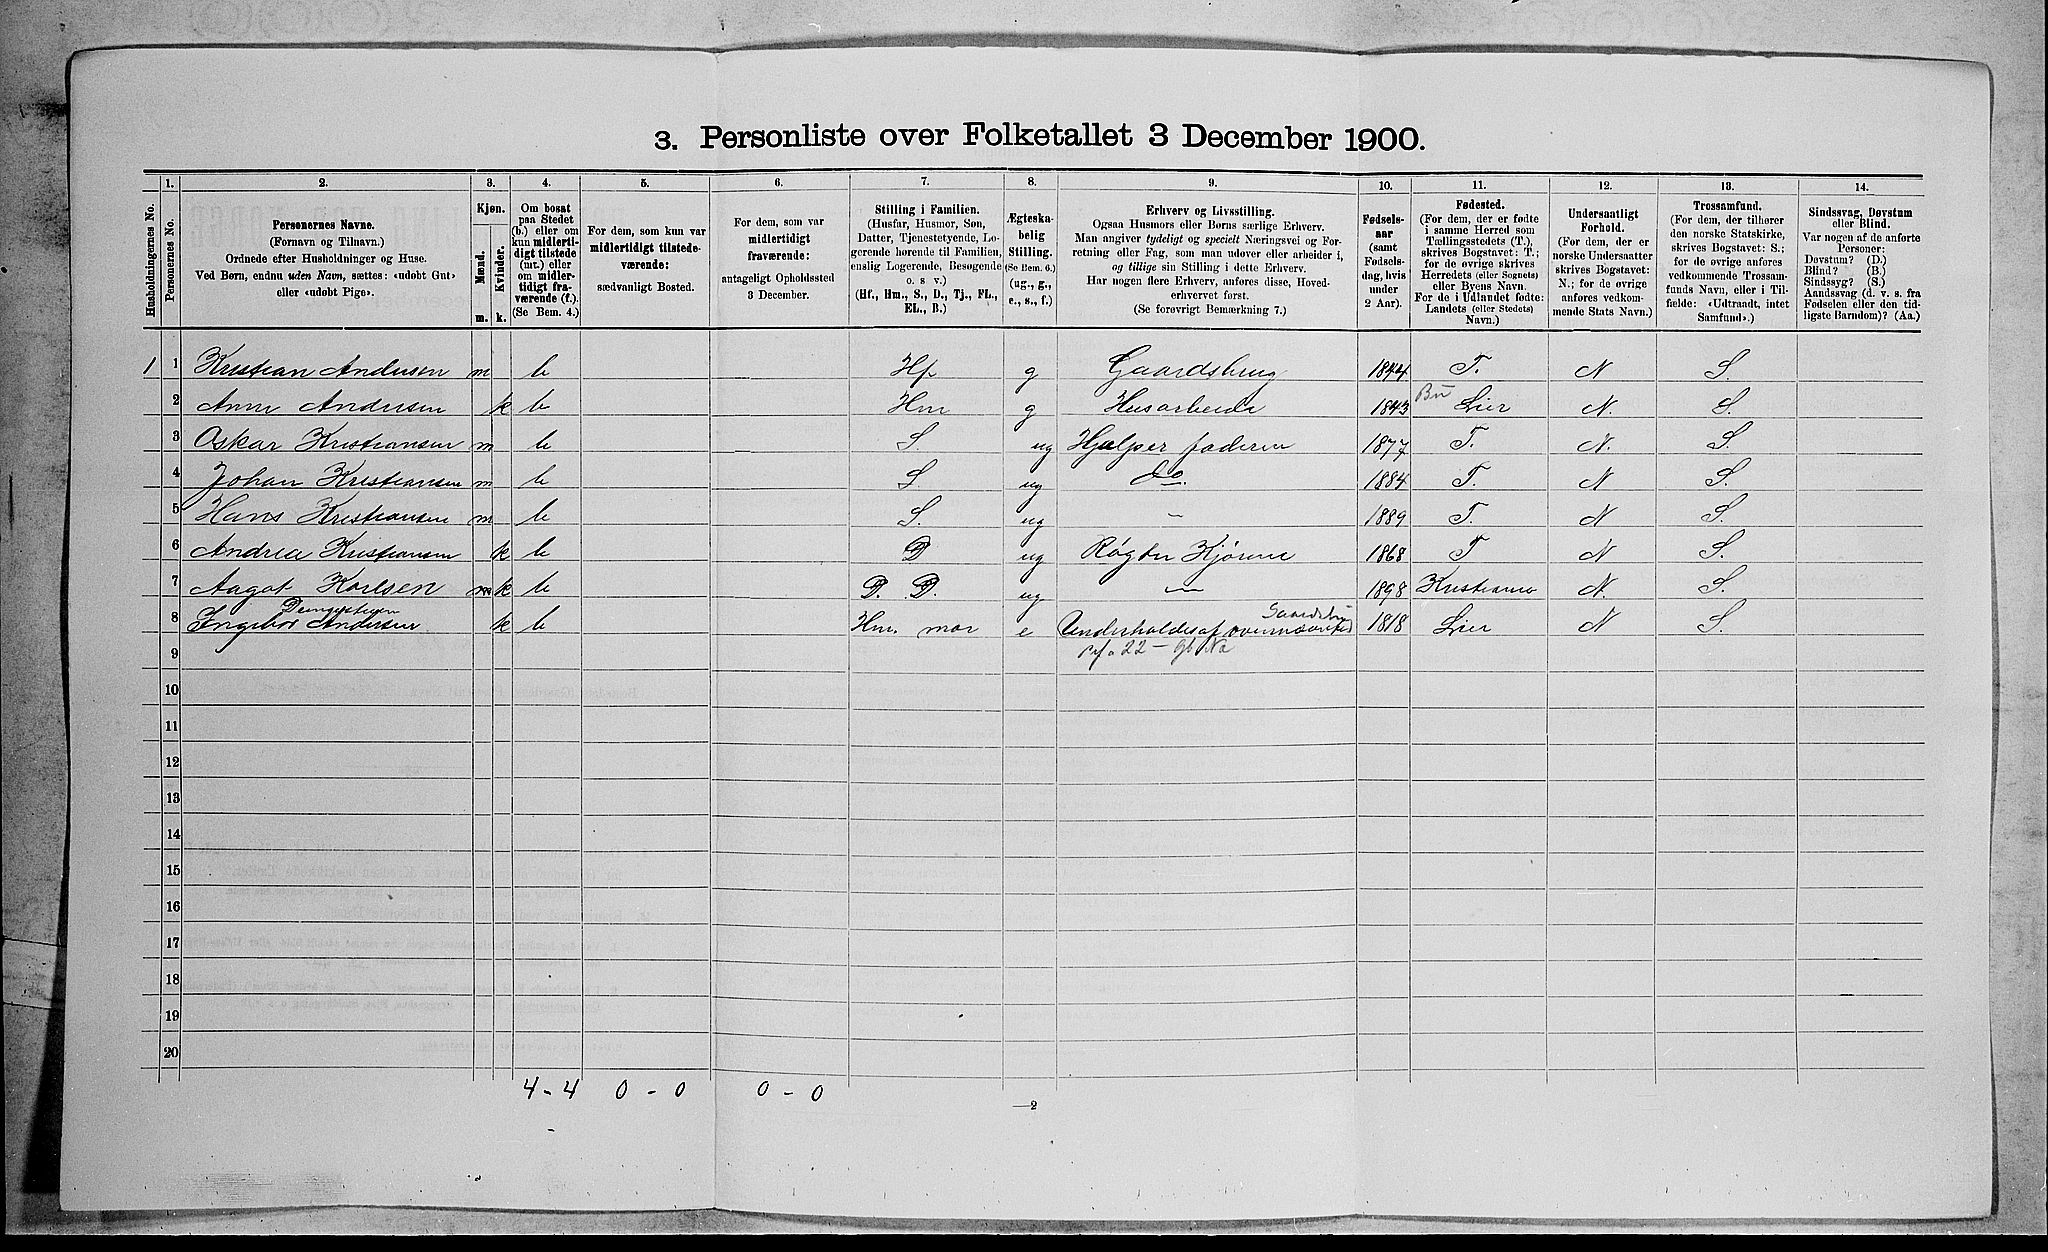 3. Personliste over Folketallet 3 December 1900.
1. 2. 3. 4. 5. 6. 7. 8. 9. 10. 11. 12. 13. 14.
Husholdningernes No.
Personernes No.
Personernes Navne.
(Fornavn og Tilnavn.)
Ordnede efter Husholdninger og Huse.
Ved Børn, endnu uden Navn, sættes: «udøbt Gut»
eller «udøbt Pige».
Kjøn.
Mænd.
Kvinder.
m. k.
Om bosat
paa Stedet
(b.) eller om
kun midlerti-
digt tilstede
(mt.) eller
om midler-
tidigt fra-
værende (f.).
(Se Bem. 4.)
For dem, som kun var
midlertidigt tilstede-
værende:
sædvanligt Bosted.
For dem, som var
midlertidigt
fraværende:
antageligt Opholdssted
3 December.
Stilling i Familien.
(Husfar, Husmor, Søn,
Datter, Tjenestetyende, Lo-
gerende hørende til Familien,
enslig Logerende, Besøgende
o. s v.)
(Hf., Hm., S., D., Tj., FL.,
EL., B.)
Ægteska-
belig
Stilling.
(Se Bem. 6.)
(ug., g.,
e., s., f.)
Erhverv og Livsstilling.
Ogsaa Husmors eller Børns særlige Erhverv.
Man angiver tydeligt og specielt Næringsvei og For-
retning eller Fag, som man udøver eller arbeider i,
og tillige sin Stilling i dette Erhverv.
Har nogen flere Erhverv, anføres disse, Hoved-
erhvervet først.
(Se forøvrigt Bemærkning 7.)
Fødsels-
aar
(samt
Fødsels-
dag, hvis
under
2 Aar).
Fødested.
(For dem, der er fødte
i samme Herred som
Tællingsstedets (T.),
skrives Bogstavet: T.;
for de øvrige skrives
Herredets (eller Sognets)
eller Byens Navn.
For de i Udlandet fødte:
Landets (eller Stedets)
Navn.)
Undersaatligt
Forhold.
(For dem, der er
norske Undersaatter
skrives Bogstavet:
N.; for de øvrige
anføres vedkom-
mende Stats Navn.)
Trossamfund.
(For dem, der tilhører
den norske Statskirke,
skrives Bogstavet: S.;
for de øvrige anføres
vedkommende Trossam-
funds Navn, eller i Til-
fælde: «Udtraadt, intet
Samfund».)
Sindssvag, Døvstum
eller Blind.
Var nogen af de anførte
Personer:
Døvstum? (D.)
Blind? (B.)
Sindssyg? (S.)
Aandssvag (d. v. s. fra
Fødselen eller den tid-
ligste Barndom)? (Aa.)
1 1 Kristian Andersen m b Hf. g Gaardsbrug 1844 T. N S.
2 Anne Andersen k b Hm g Husarbeide 1843 Bu Lier N. S.
3 Oskar Kristiansen m b S. ug Hjælper faderen 1877 T. N. S.
4 Johan Kristiansen m b S ug do. 1884 T. N S.
5 Hans Kristiansen m b S. ug - 1889 T. N S.
6 Andrea Kristiansen k b D ug Røgter Kjørene 1868 T N S.
7 Aagot Karlsen k b D. D. ug - 1898 Kristiania N. S.
8 Ingebor Andersen k b Hm. mor e Underholdes af 1818 Lier N S.
9
10
11
12
13
14
15
16
17
18
19
20
4 - 4 0 - 0 0 - 0
2